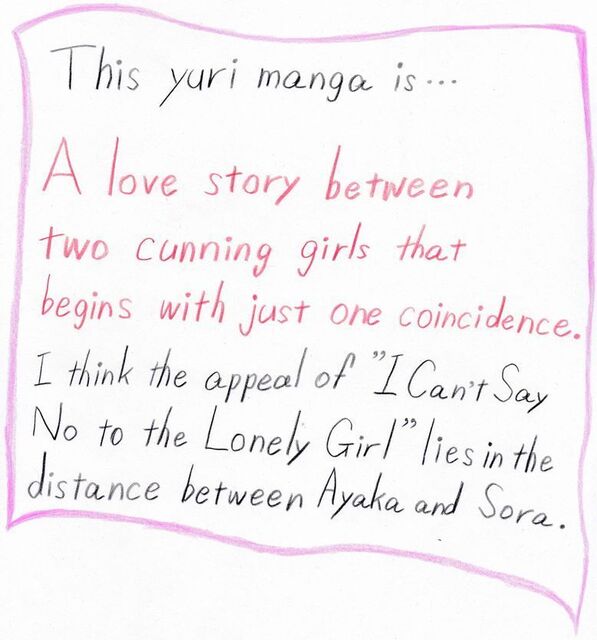 This yuri manga is...
A love story between
two cunning girls that
begins with just one coincidence.
I think the appeal of "I Can't Say
No to the Lonely Girl" lies in the
distance between Ayaka and Sora.